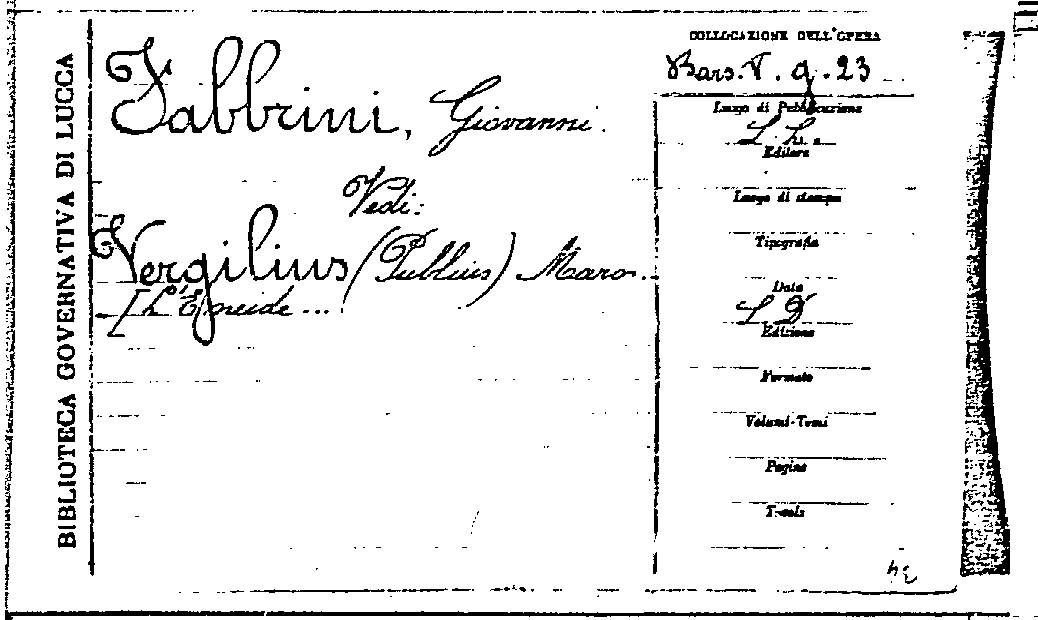 BIBLIOTECA GOVERNATIVA DI LUCCA
Fabbrini, Giovanni.
Vedi:
Vergilius (Publius) Maro.
[L'Eneide ...
COLLOCAZIONE DELL'OPERA
Bars. V. g. 23
Luogo di Pubblicazione
Editore
Luogo di stampa
Tipografia
Data
Edizione
Formato
Volumi-Tomi
Pagine
Tavole